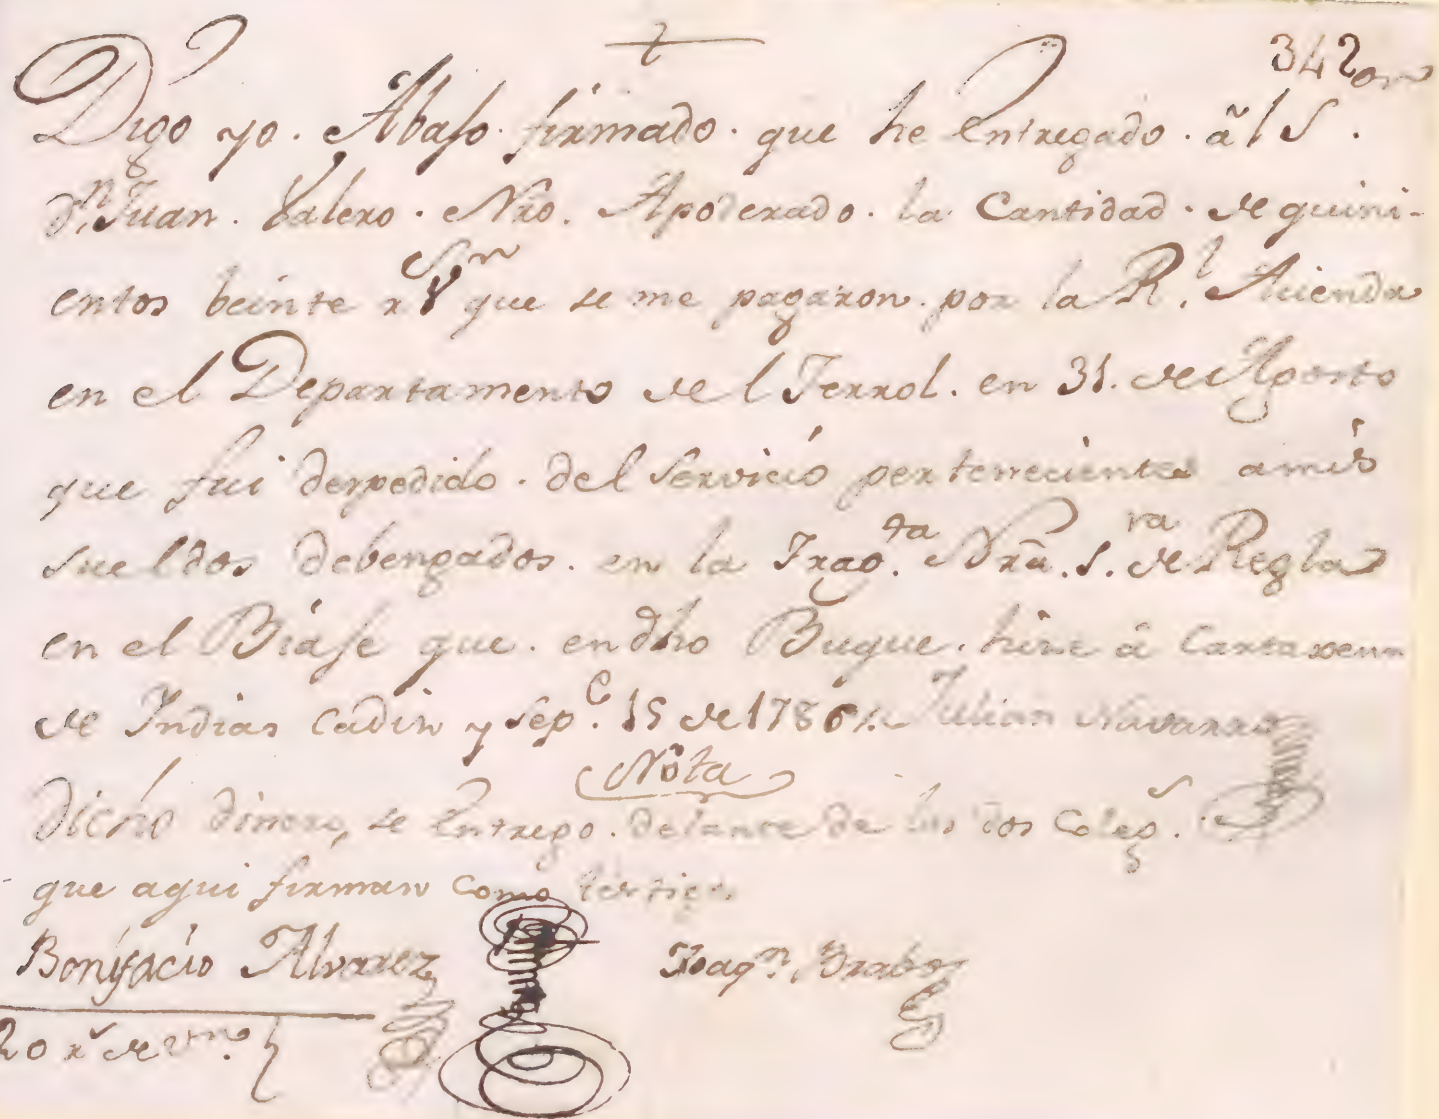 342
Digo yo. Abajo. firmado. que he Entregado. al S.
Dn. Juan. Valero. Nro. Apoderado. la Cantidad. de quini-
entos beinte rs vn que se me pagaron. por la Rl. Acienda
en el Departamento del Ferrol. en 31. de Agosto
que fui despedido. del servicio pertenecientes a mis
sueldos debengados. en la Fragta. Nra. Sra. de Regla
en el Biaje que. en dho Buque. hice á Cartaxena
de Indias Cadiz y Sepe. 15 de 1786 Julian Navarro
Nota
dicho dinero, se Entrego. delante de los dos Colegs.
que aqui firman Como testigos
Bonifacio Alvarez Joaqn. Brabo
20 rs de vn.